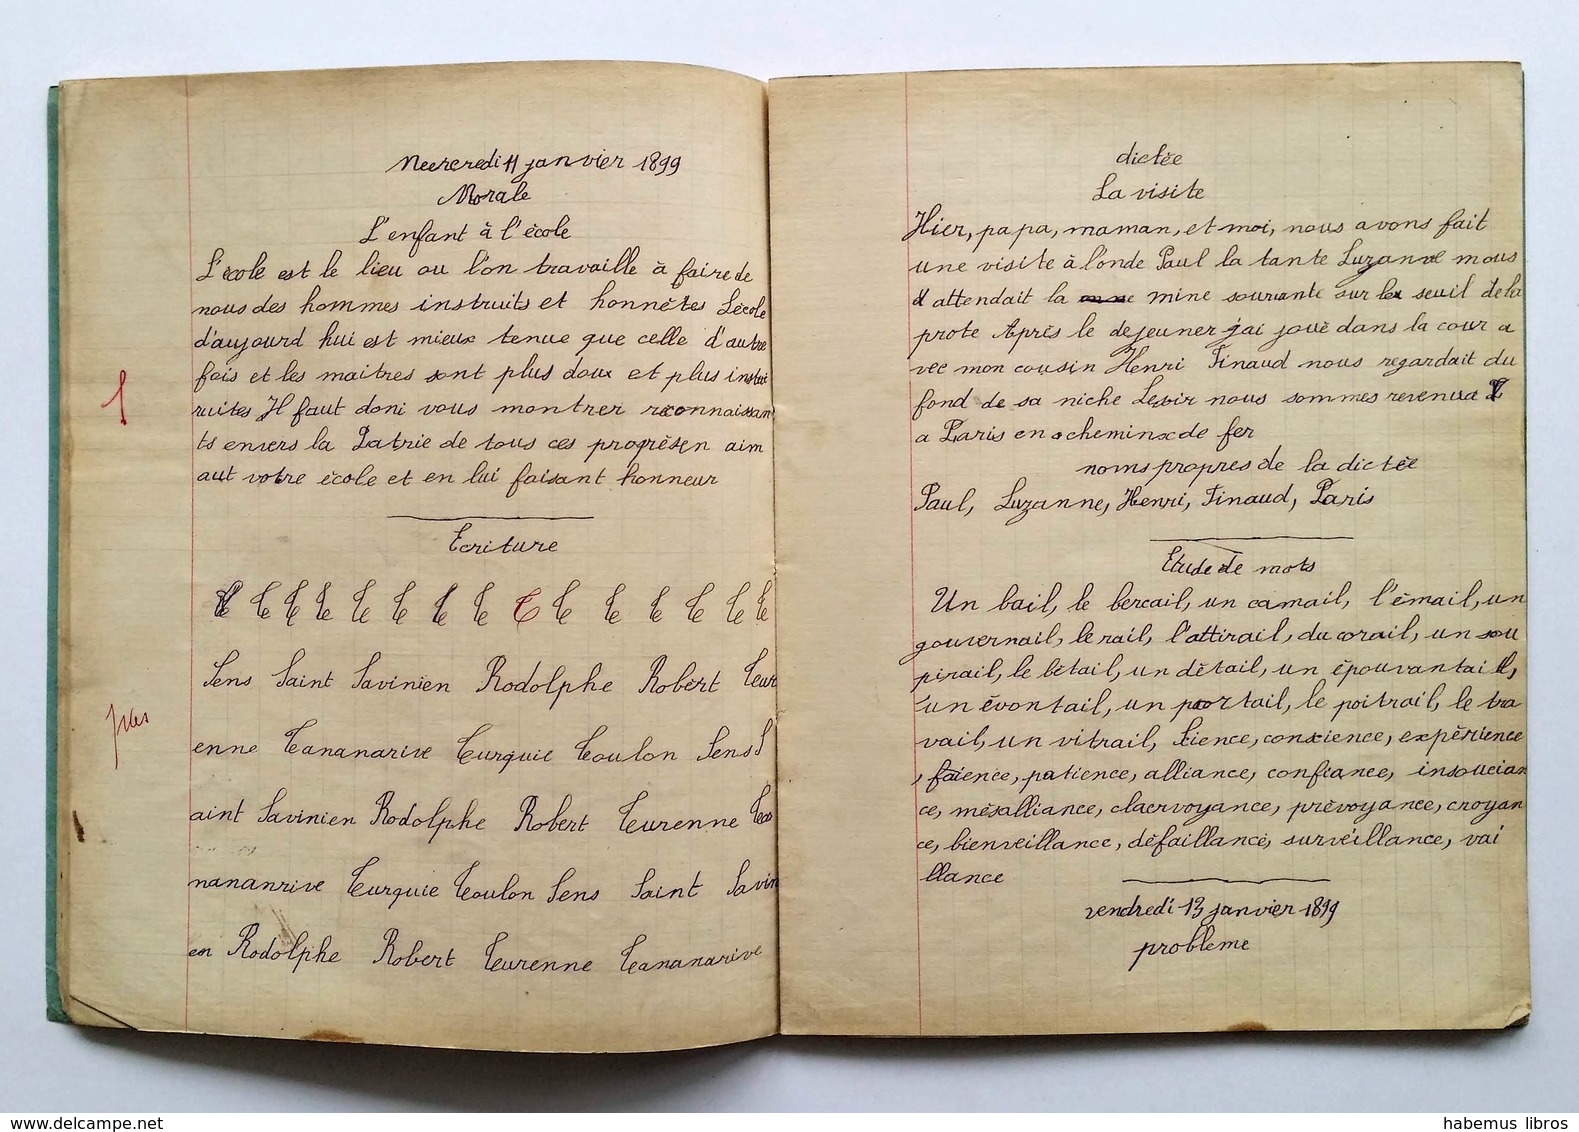 Meercredi 11 janvier 1899
Morale
L'enfant à l'école
L'école est le lieu ou l'on travaille à faire de
nous des hommes instruits et honnètes L'école
d'aujourd hui est mieux tenue que celle d'autre
fois et les maitres sont plus doux et plus instrui
ruites Il faut doni vous montrer reconnaissan
ts envers la Patrie de tous ces progrèsen aim
aut votre école et en lui faisant honneur
Ecriture
T T T T T T T T T T T T T T T
Sens Saint Savinien Rodolphe Robert Teur
enne Tananarive Turquie Toulon Sens S
aint Savinien Rodolphe Robert Teurenne Tea
nananrive Turquie Toulon Sens Saint Savin
en Rodolphe Robert Teurenne Tananarive
dictée
La visite
Hier, papa, maman, et moi, nous avons fait
une visite à l'onde Paul la tante Luzanne mous
attendait la mine souriante sur le seuil de la
prote Après le dejeuner j'ai joué dans la cour a
vec mon cousin Henri Finaud nous regardait du
fond de sa niche Lesoir nous sommes revenua
a Paris en chemin de fer
noms propres de la dictée
Paul, Luzanne, Henri, Finaud, Paris
Etude de mots
Un bail, le bercail, un camail, l'émail, un
gouvernail, le rail, l'attirail, du corail, un sou
pirail, le bétail, un détail, un épouvantail,
un évontail, un portail, le poitrail, le tra
vail, un vitrail, Sience, conscience, expèrience
, faience, patience, alliance, confiance, insoucian
ce, mèsalliance, clacrvoyance, prèvoyance, croyan
ce, bienveillance, dèfaillance, surveillance, vai
llance
vendredi 13 janvier 1899
probleme
www.delcampe.net
habemus libros